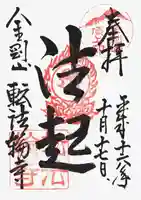 奉拝
平成十六年
十月十七日
法起
金剛山転法輪寺